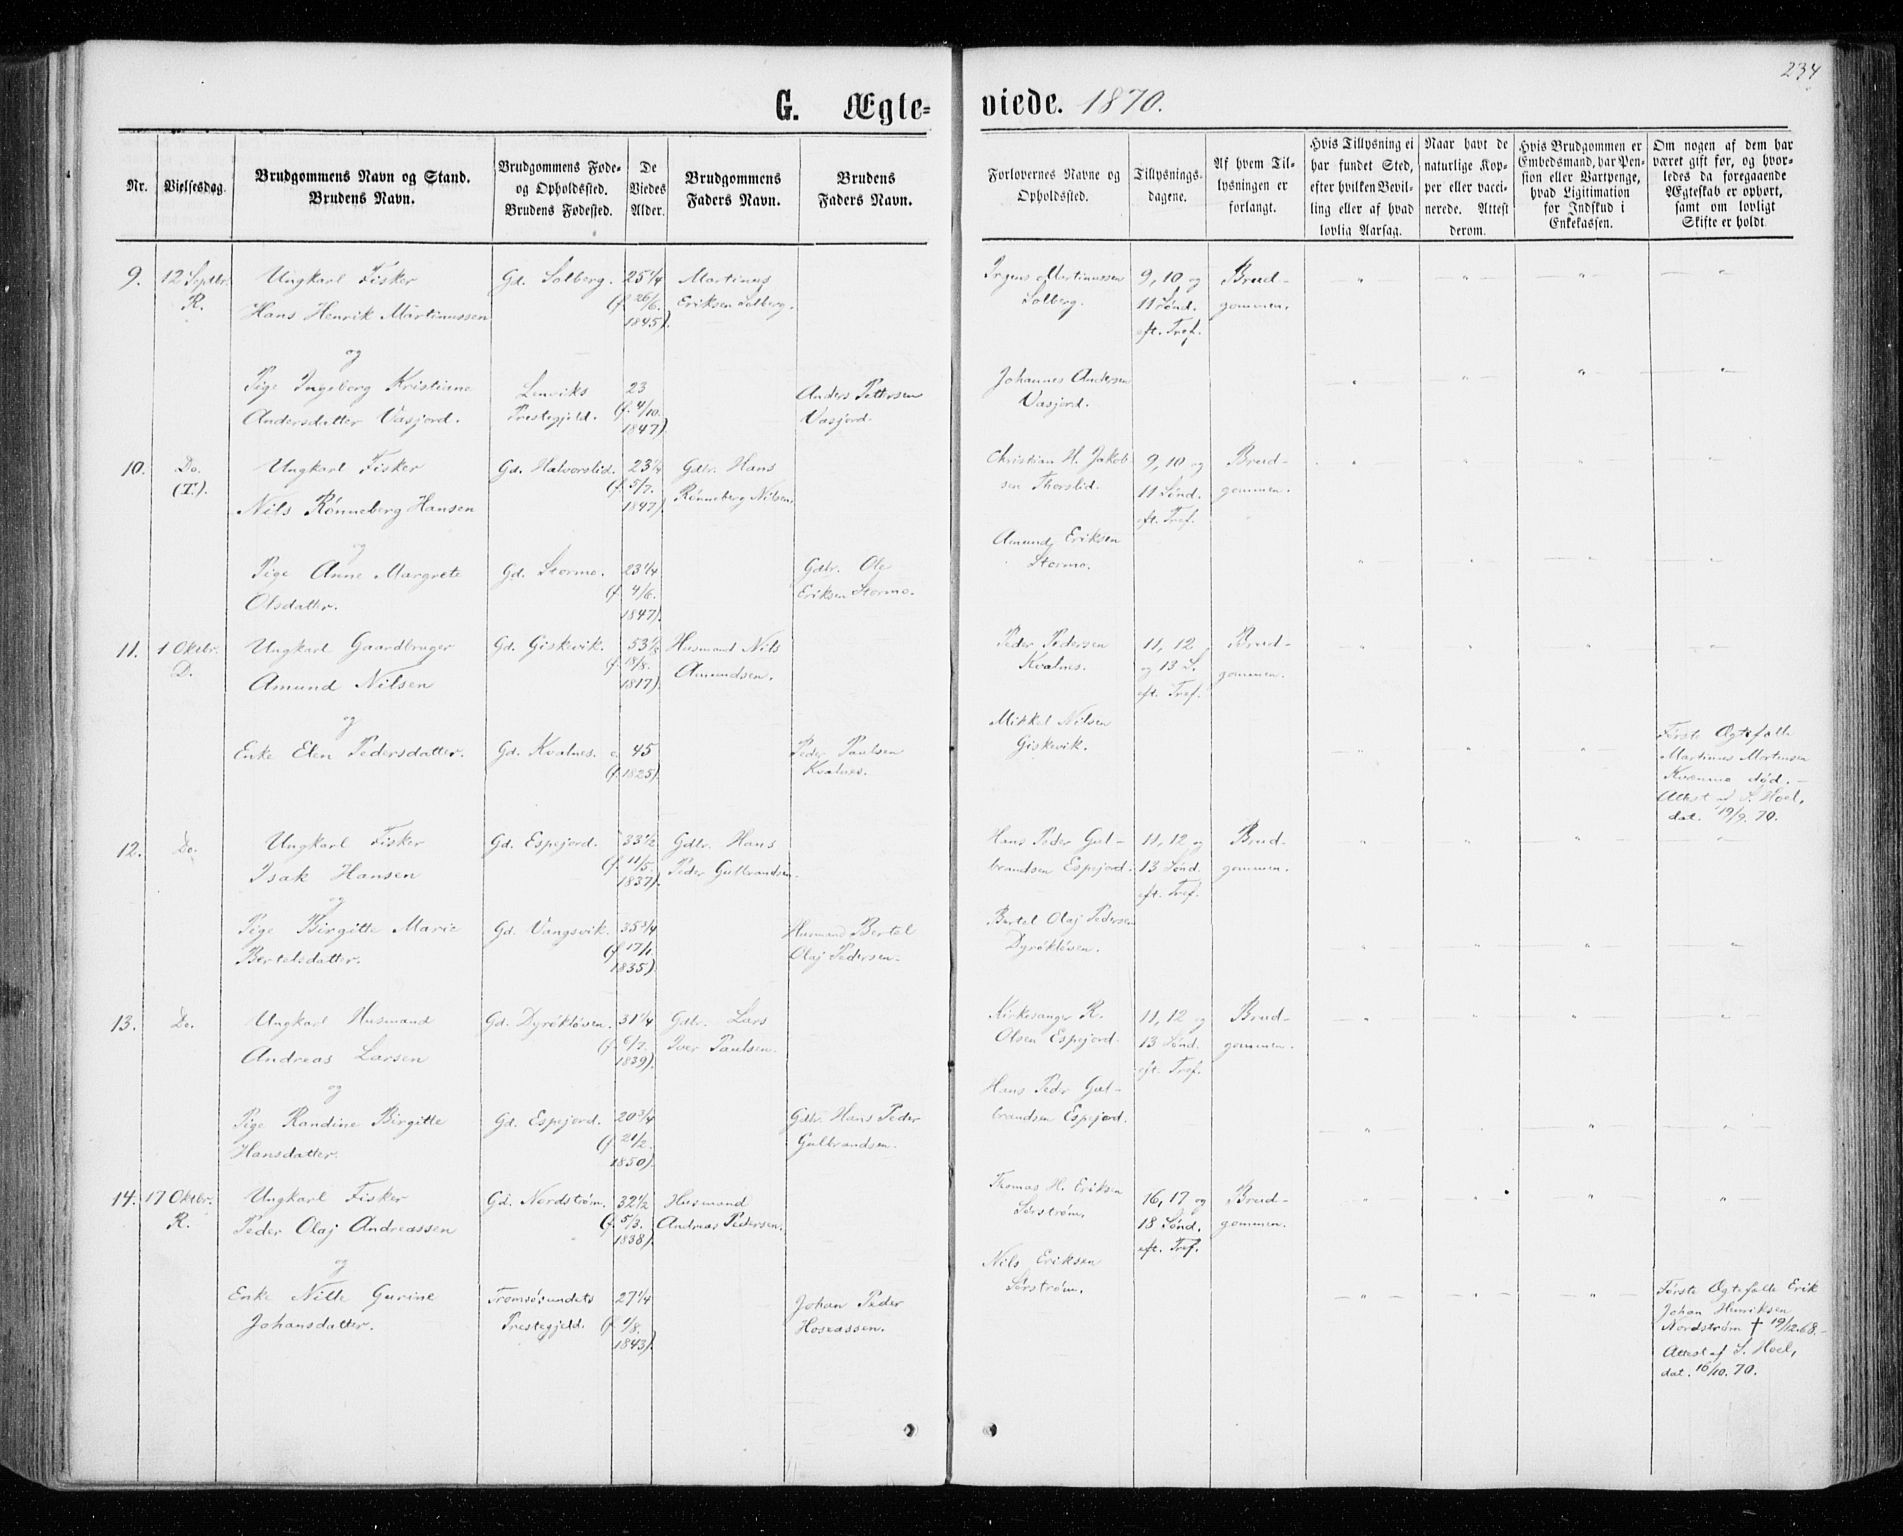 234
G. Ægte=
viede. 1870.
Nr.
Vielsesdag.
Brudgommens Navn og Stand.
Brudens Navn.
Brudgommens Føde-
og Opholdssted.
Brudens Fødested.
De
Viedes
Alder.
Brudgommens
Faders Navn.
Brudens
Faders Navn.
Forlovernes Navne og
Opholdssted.
Tillysnings-
dagene.
Af hvem Til-
lysningen er
forlangt.
Hvis Tillysning ei
har fundet Sted,
efter hvilken Bevil-
ling eller af hvad
lovlig Aarsag.
Naar havt de
naturlige Kop-
per eller vacci-
nerede. Attest
derom.
Hvis Brudgommen er
Embedsmand, har Pen-
sion eller Vartpenge,
hvad Ligitimation
for Indskud i
Enkekassen.
Om nogen af dem har
været gift før, og hvor-
ledes da foregaaende
Ægteskab er ophørt,
samt om lovligt
Skifte er holdt.
9.
12 Septbr.
R.
Ungkarl Fisker
Hans Henrik Martinussen
og
Pige Ingeborg Kristiane
Andersdatter Vasjord.
Gd. Solberg.
Lenviks
Prestegjeld.
25 1/4
(f. 26/6.
1845).
23
(f. 4/10.
1847).
Martinus
Eriksen Solberg.
Anders Pettersen
Vasjord.
Jrgens Martinussen
Solberg.
Johannes Andersen
Vasjord.
9, 10 og
11 Sønd.
eft. Tref.
Brud-
gommen.
10.
Do.
(T.).
Ungkarl Fisker
Nils Rønneberg Hansen
og
Pige Anne Margrete
Olsdatter.
Gd. Halvorslid.
Gd. Stormo.
23 1/4
(f. 5/7.
1847).
23 1/4
(f. 4/6.
1847).
Gdbr. Hans
Rønneberg Nilsen.
Gdbr. Ole
Eriksen Stormo.
Christian H. Jakob-
sen Thorslid.
Amund Eriksen
Stormo.
9, 10 og
11 Sønd.
eft. Tref.
Brud-
gommen.
11.
1 Oktbr.
D.
Ungkarl Gaardbruger
Amund Nilsen
og
Enke Elen Pedersdatter.
Gd. Giskevik.
Gd. Kvalnes.
53 1/2
1817).
c. 45
(f. 1825).
Husmand Nils
Amundsen.
Peder Paulsen
Kvalnes.
Peder Pedersen
Kvalnes.
Mikkel Nilsen
Giskevik.
11, 12
og 13 S.
eft. Tref.
Brud-
gommen.
Første Ægtefælle
Martinus Mortensen
Kvænmo død. -
Attest af S. Hoel,
dat. 19/9. 70.
12.
Do.
Ungkarl Fisker
Isak Hansen
og
Pige Birgitte Marie
Bertelsdatter.
Gd. Espejord.
Gd. Vangsvik.
33 1/2
(f. 11/5.
1837).
35 3/4
(f. 17/1.
1835).
Gdbr. Hans
Peder Gulbrandsen.
Husmand Bertel
Olaj Pedersen.
Hans Peder Gul-
brandsen Espejord.
Bertel Olaj Pedersen
Dyrökløven.
11, 12 og
13 Sønd.
eft. Tref.
Brud-
gommen.
13.
Do.
Ungkarl Husmand
Andreas Larsen
og
Pige Randine Birgitte
Hansdatter.
Gd. Dyrökløven.
Gd. Espejord.
31 1/4
(f. 6/7.
1839).
20 3/4
(f. 21/2.
1850).
Gdbr. Lars
Iver Paulsen.
Gdbr. Hans Peder
Gulbrandsen.
Kirkesanger R.
Olsen Espejord.
Hans Peder Gul-
brandsen Espejord.
11, 12 og
13 Sønd.
eft. Tref.
Brud-
gommen.
14.
17 Oktbr.
R.
Ungkarl Fisker
Peder Olaj Andreassen
og
Enke Nille Gurine
Johansdatter.
Gd. Nordstrøm.
Tromsösundets
Prestegjeld.
32 1/2
(f. 5/3.
1838).
27 1/4
(f. 1/8.
1843).
Husmand
Andreas Pedersen.
Johan Peder
Hoseassen.
Thomas H. Eriksen
Sørstrøm.
Nils Eriksen
Sørstrøm.
16, 17 og
18 Sønd.
eft. Tref.
Brud-
gommen.
Første Ægtefælle Erik
Johan Henriksen
Nordstrøm † 19/12.68. -
Attest af S. Hoel,
dat. 16/10. 70.